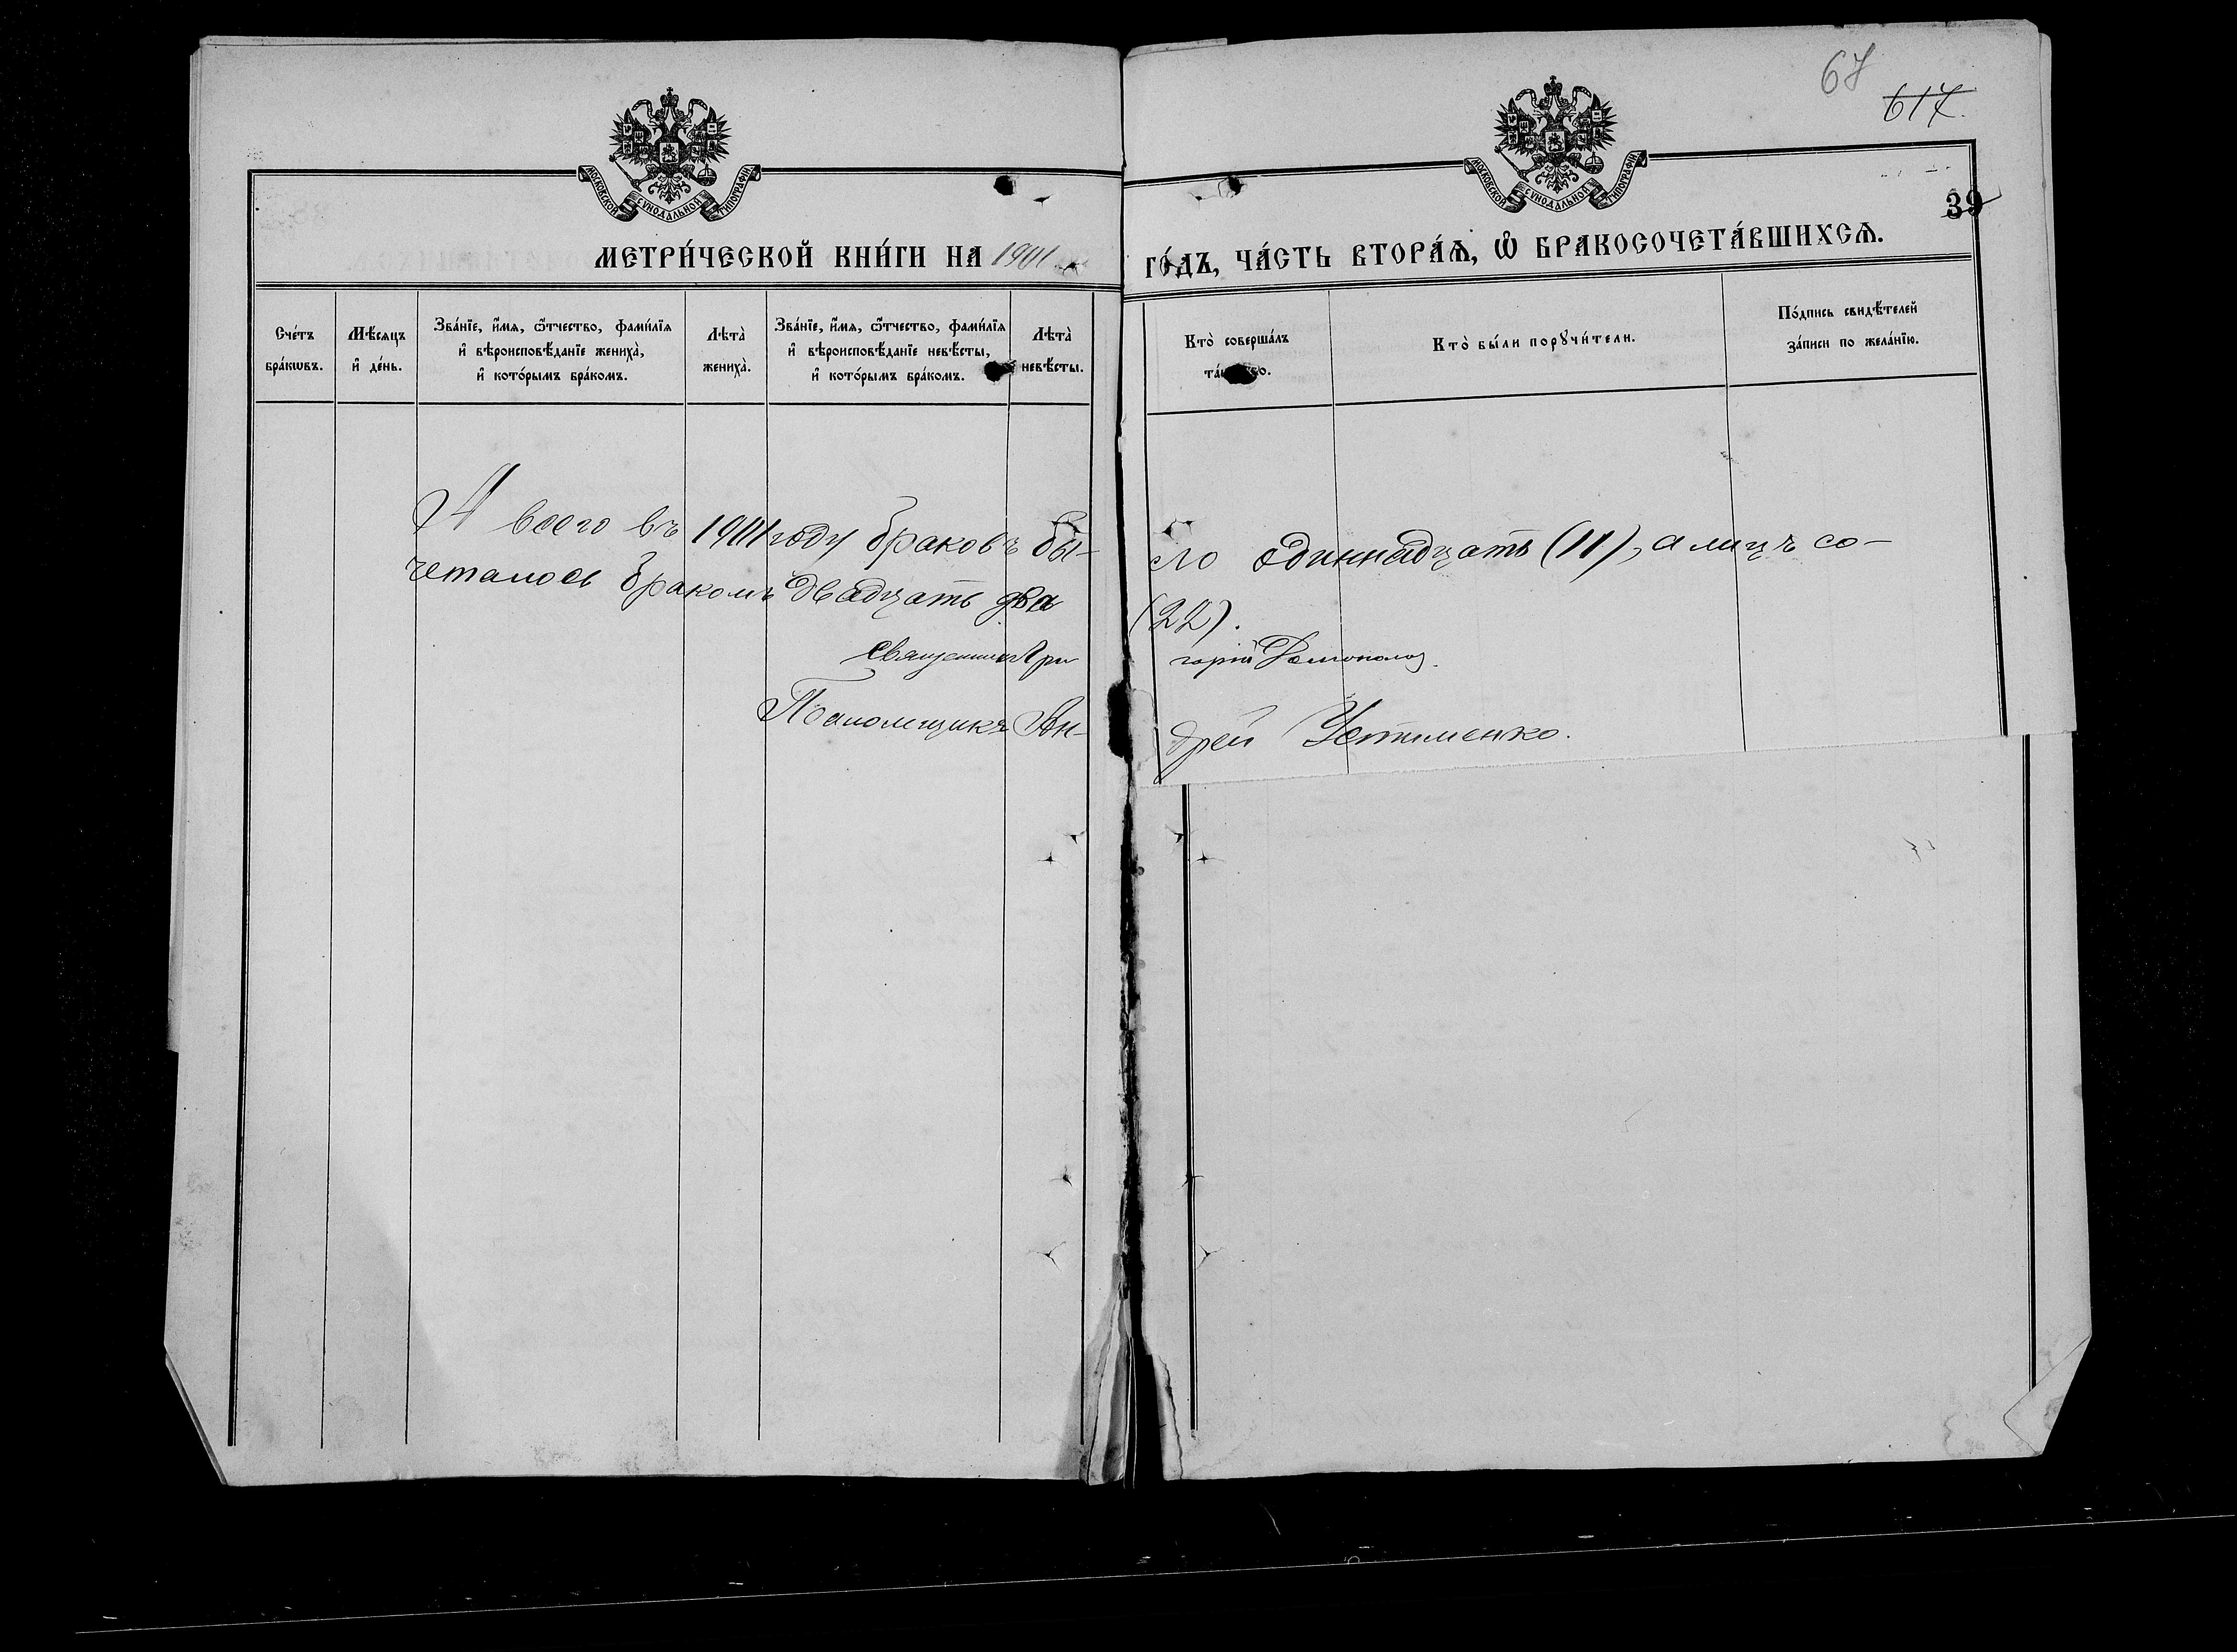 67
617.
39
МОСКОВСКОЙ СѴНОДАЛЬНОЙ ТИПОГРАФІИ
МОСКОВСКОЙ СѴНОДАЛЬНОЙ ТИПОГРАФІИ
МЕТРИ́ЧЕСКОЙ КНИ́ГИ НА 1901 ГО́ДЪ, ЧА́СТЬ ВТОРА́Ѧ, Ѡ҆ БРАКОСОЧЕТА́ВШИХСѦ.
Сче́тъ бра́кѡвъ.
Мѣ́сѧцъ и҆ де́нь.
Зва́нїе, и҆́мѧ, ѻ҆́тчество, фами́лїѧ и҆ вѣроисповѣ́данїе жениха̀, и҆ кото́рымъ бра́комъ.
Лѣта̀ жениха̀.
Зва́нїе, и҆́мѧ, ѻ҆́тчество, фами́лїѧ и҆ вѣроисповѣ́данїе невѣ́сты, и҆ кото́рымъ бра́комъ.
Лѣта̀ невѣ́сты.
Кто̀ соверша́лъ
Кто̀ бы́ли порꙋчи́тели.
По́дпись свидѣ́телей за́писи по жела́нїю.
А всего въ 1901 году браковъ бы-ло одиннадцать (11), а лицъ со-
четалось бракомъ двадцать два (22).
Священник Григорій
Псаломщикъ Андрей Устименко.